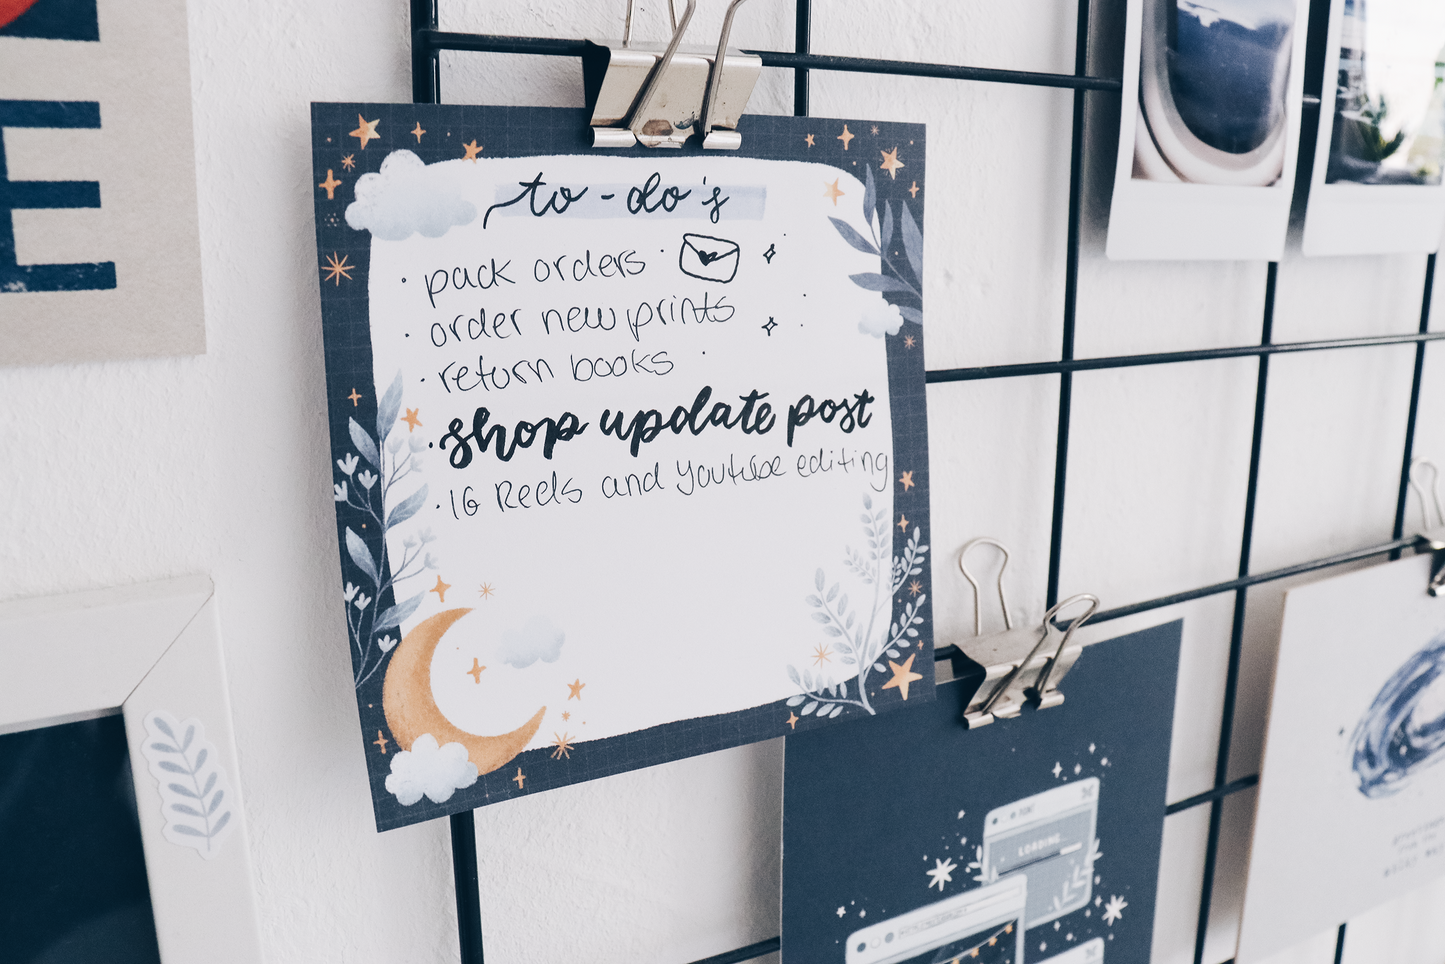 E
to-do's
· pack orders
· order new prints
· return books
· shop update post
· IG Reels and Youtube editing
LOADING...